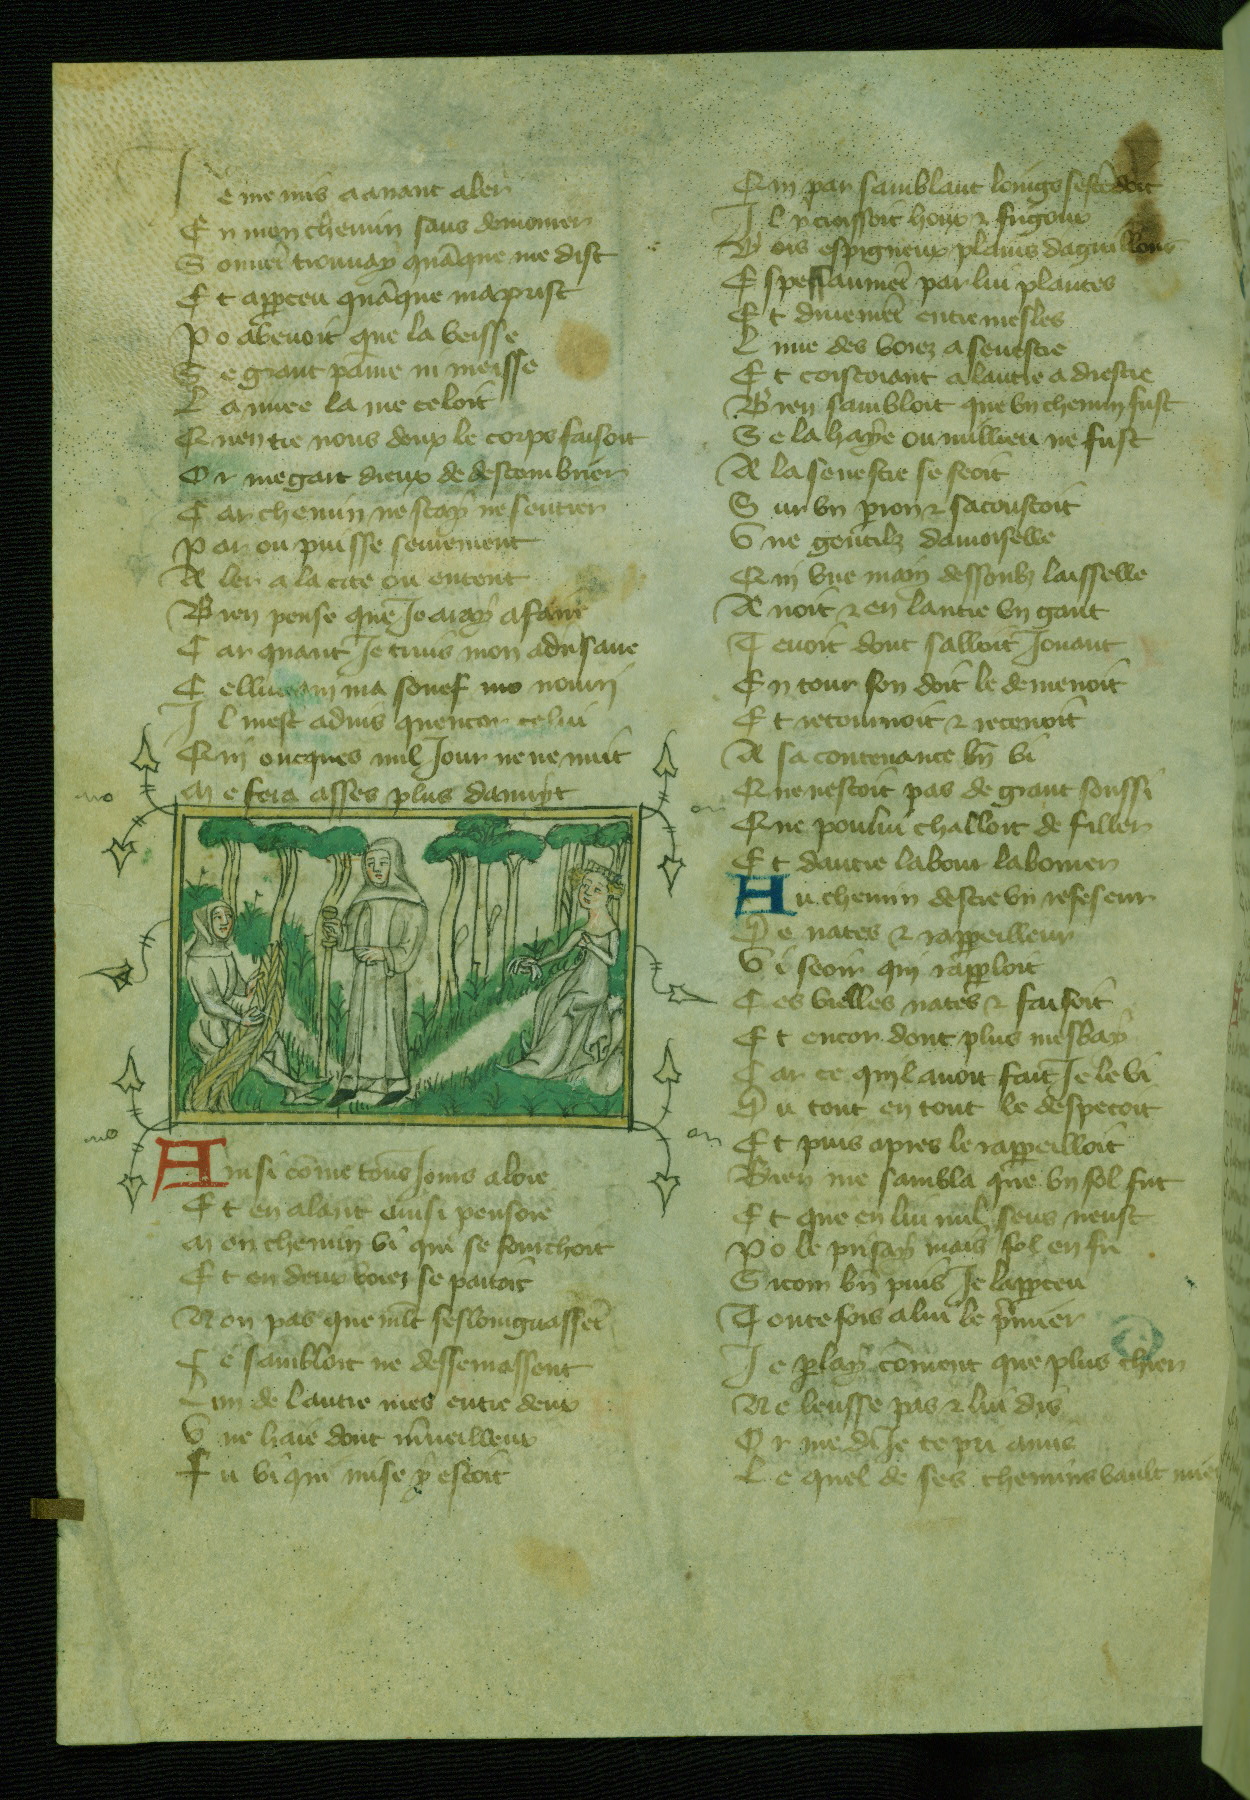 Je me mis auant aler
En mon chemin sans demourer
Souuēt trouuay quāque me dist
Et apperceu quāque ma prist
Po auenoit que la veisse
Se grant paine ni meisse
La nuee la me celoit
Quentre nous deux le corps faisoit
Or me gart dieux de descombrier
Car chemin ne scay ne sentier
Par ou puisse seurement
Aler a la cite ou entent
Bien pense que Je auray afaire
Car quant Je truis mon aduersaire
Cellui qui ma souef me nourri
Il mest aduis quencor celui
Qui oncques nul Jour ne me nuit
Me fera asses plus dannuyt
Ainsi cōme tous Jours aloie
Et en alant ainsi pensoie
Mon chemin vi qui se fourchoit
Et en deux voies se partoit
Non pas que mlt sesloingnassēt
Ce sambloit ne dessemassent
Lun de lautre mes entre deux
Vne haie dont merueilleux
Fu vi qui mise y estoit
Qui par samblant loings sestēdoit
Il y croissoit houx & frigoux
Bois espigneux plains daguillons
Espessaumēt par lui plantes
Et druemēt entremesles
Lune des voiez a senestre
Et coistoiant a lautre a diestre
Bien sambloit que vn chemin fust
Se la haye ou millieu ne fust
A la senestre se seoit
Sur vn pron & sacoustoit
Vne gentilz damoiselle
Qui vne main dessoubz laisselle
Auoit & en lautre vn gant
Tenoit dont salloit Jouant
Entour son doit le demenoit
Et retournoit & recenoit
A sa contenance bn̄ vi
Que nestoit pas de grant soussi
Que pou lui challoit de filler
Et dautre labour labourer
Au chemin destre vn refeseur
De nates & rappeilleur
Vi seoir qui rappeloit
Ces vielles nates & faisoit
Et encor dont plus mesbay
Car ce quil auoit fait Je le vi
Du tout en tout le despecoit
Et puis apres le rappeilloit
Bien me sambla que vn fol fut
Et que en lui nul sens neust
Po le prisay mais fol en fu
Si com bn̄ puis Je lapperceu
Toutefois a lui le p̄mier
Je parlay cōment que plus chier
Ne leusse pas & lui dis
Or me di Je te pri amis
Le quel de ses chemins vault